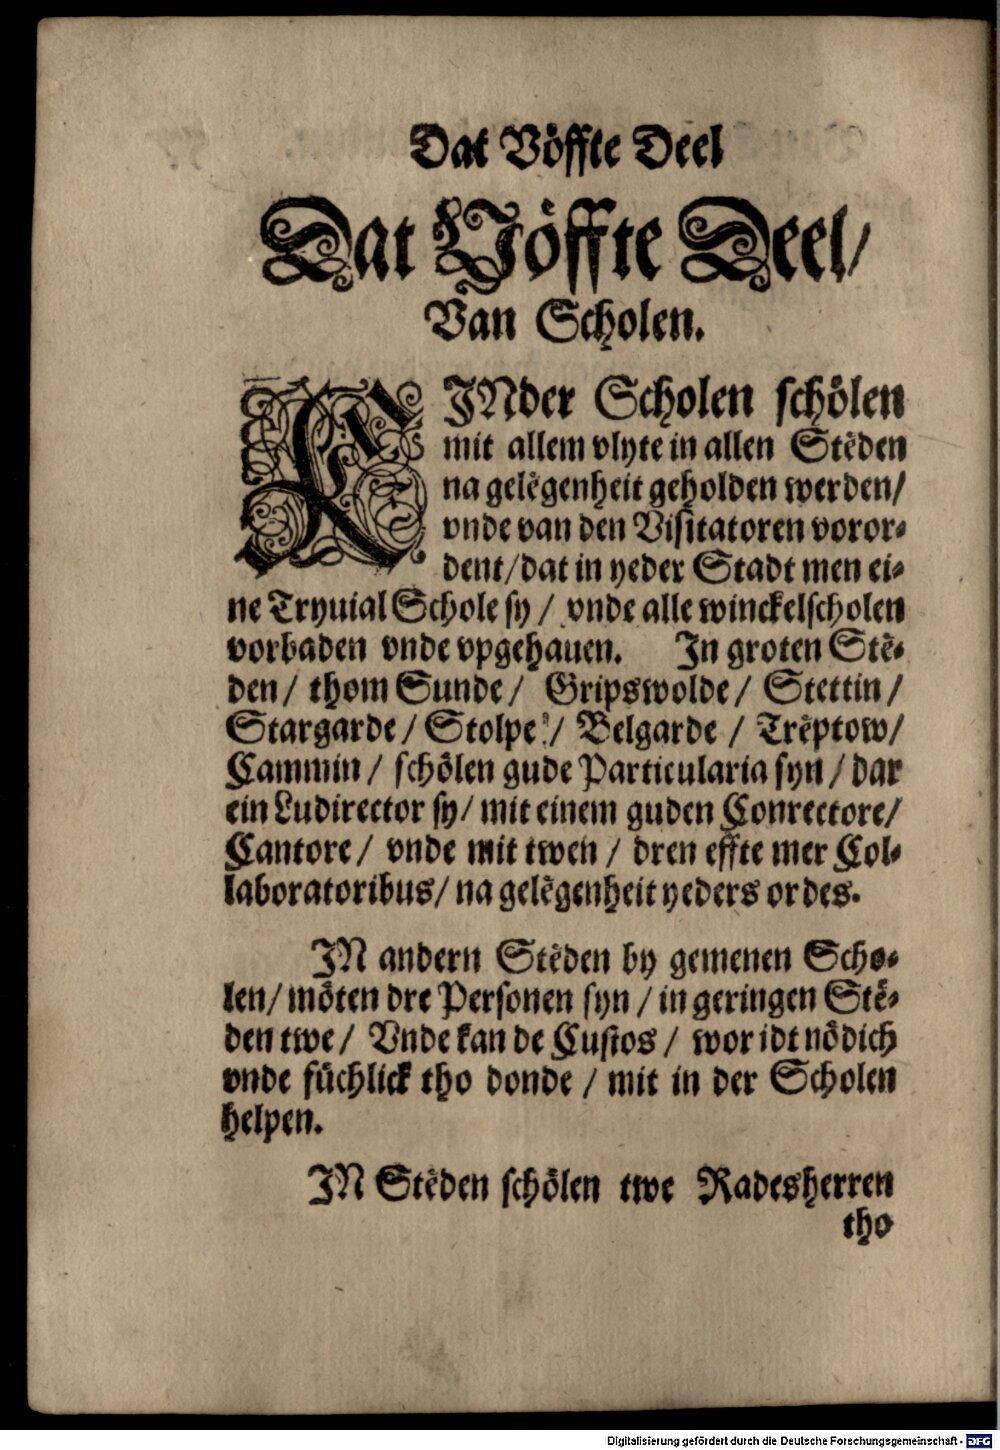 Dat Vöffte Deel
Dat Vöffte Deel/
Van Scholen.
KINder Scholen schölen
mit allem vlyte in allen Stëden
na gelëgenheit geholden werden/
vnde van den Visitatoren voror-
dent/dat in yeder Stadt men ei-
ne Tryuial Schole sy / vnde alle winckelscholen
vorbaden vnde vpgehauen. In groten Stë-
den / thom Sunde / Gripswolde / Stettin /
Stargarde / Stolpe / Belgarde / Trëptow/
Cammin / schölen gude Particularia syn / dar
ein Ludirector sy/ mit einem guden Conrectore/
Cantore / vnde mit twen / dren effte mer Col-
laboratoribus/ na gelëgenheit yeders ordes.
IN andern Stëden by gemenen Scho-
len/ möten dre Personen syn / in geringen Stë-
den twe / Vnde kan de Custos / wor idt nödich
vnde füchlick tho donde / mit in der Scholen
helpen.
IN Stëden schölen twe Radesherren
tho
Digitalisierung gefördert durch die Deutsche Forschungsgemeinschaft - DFG